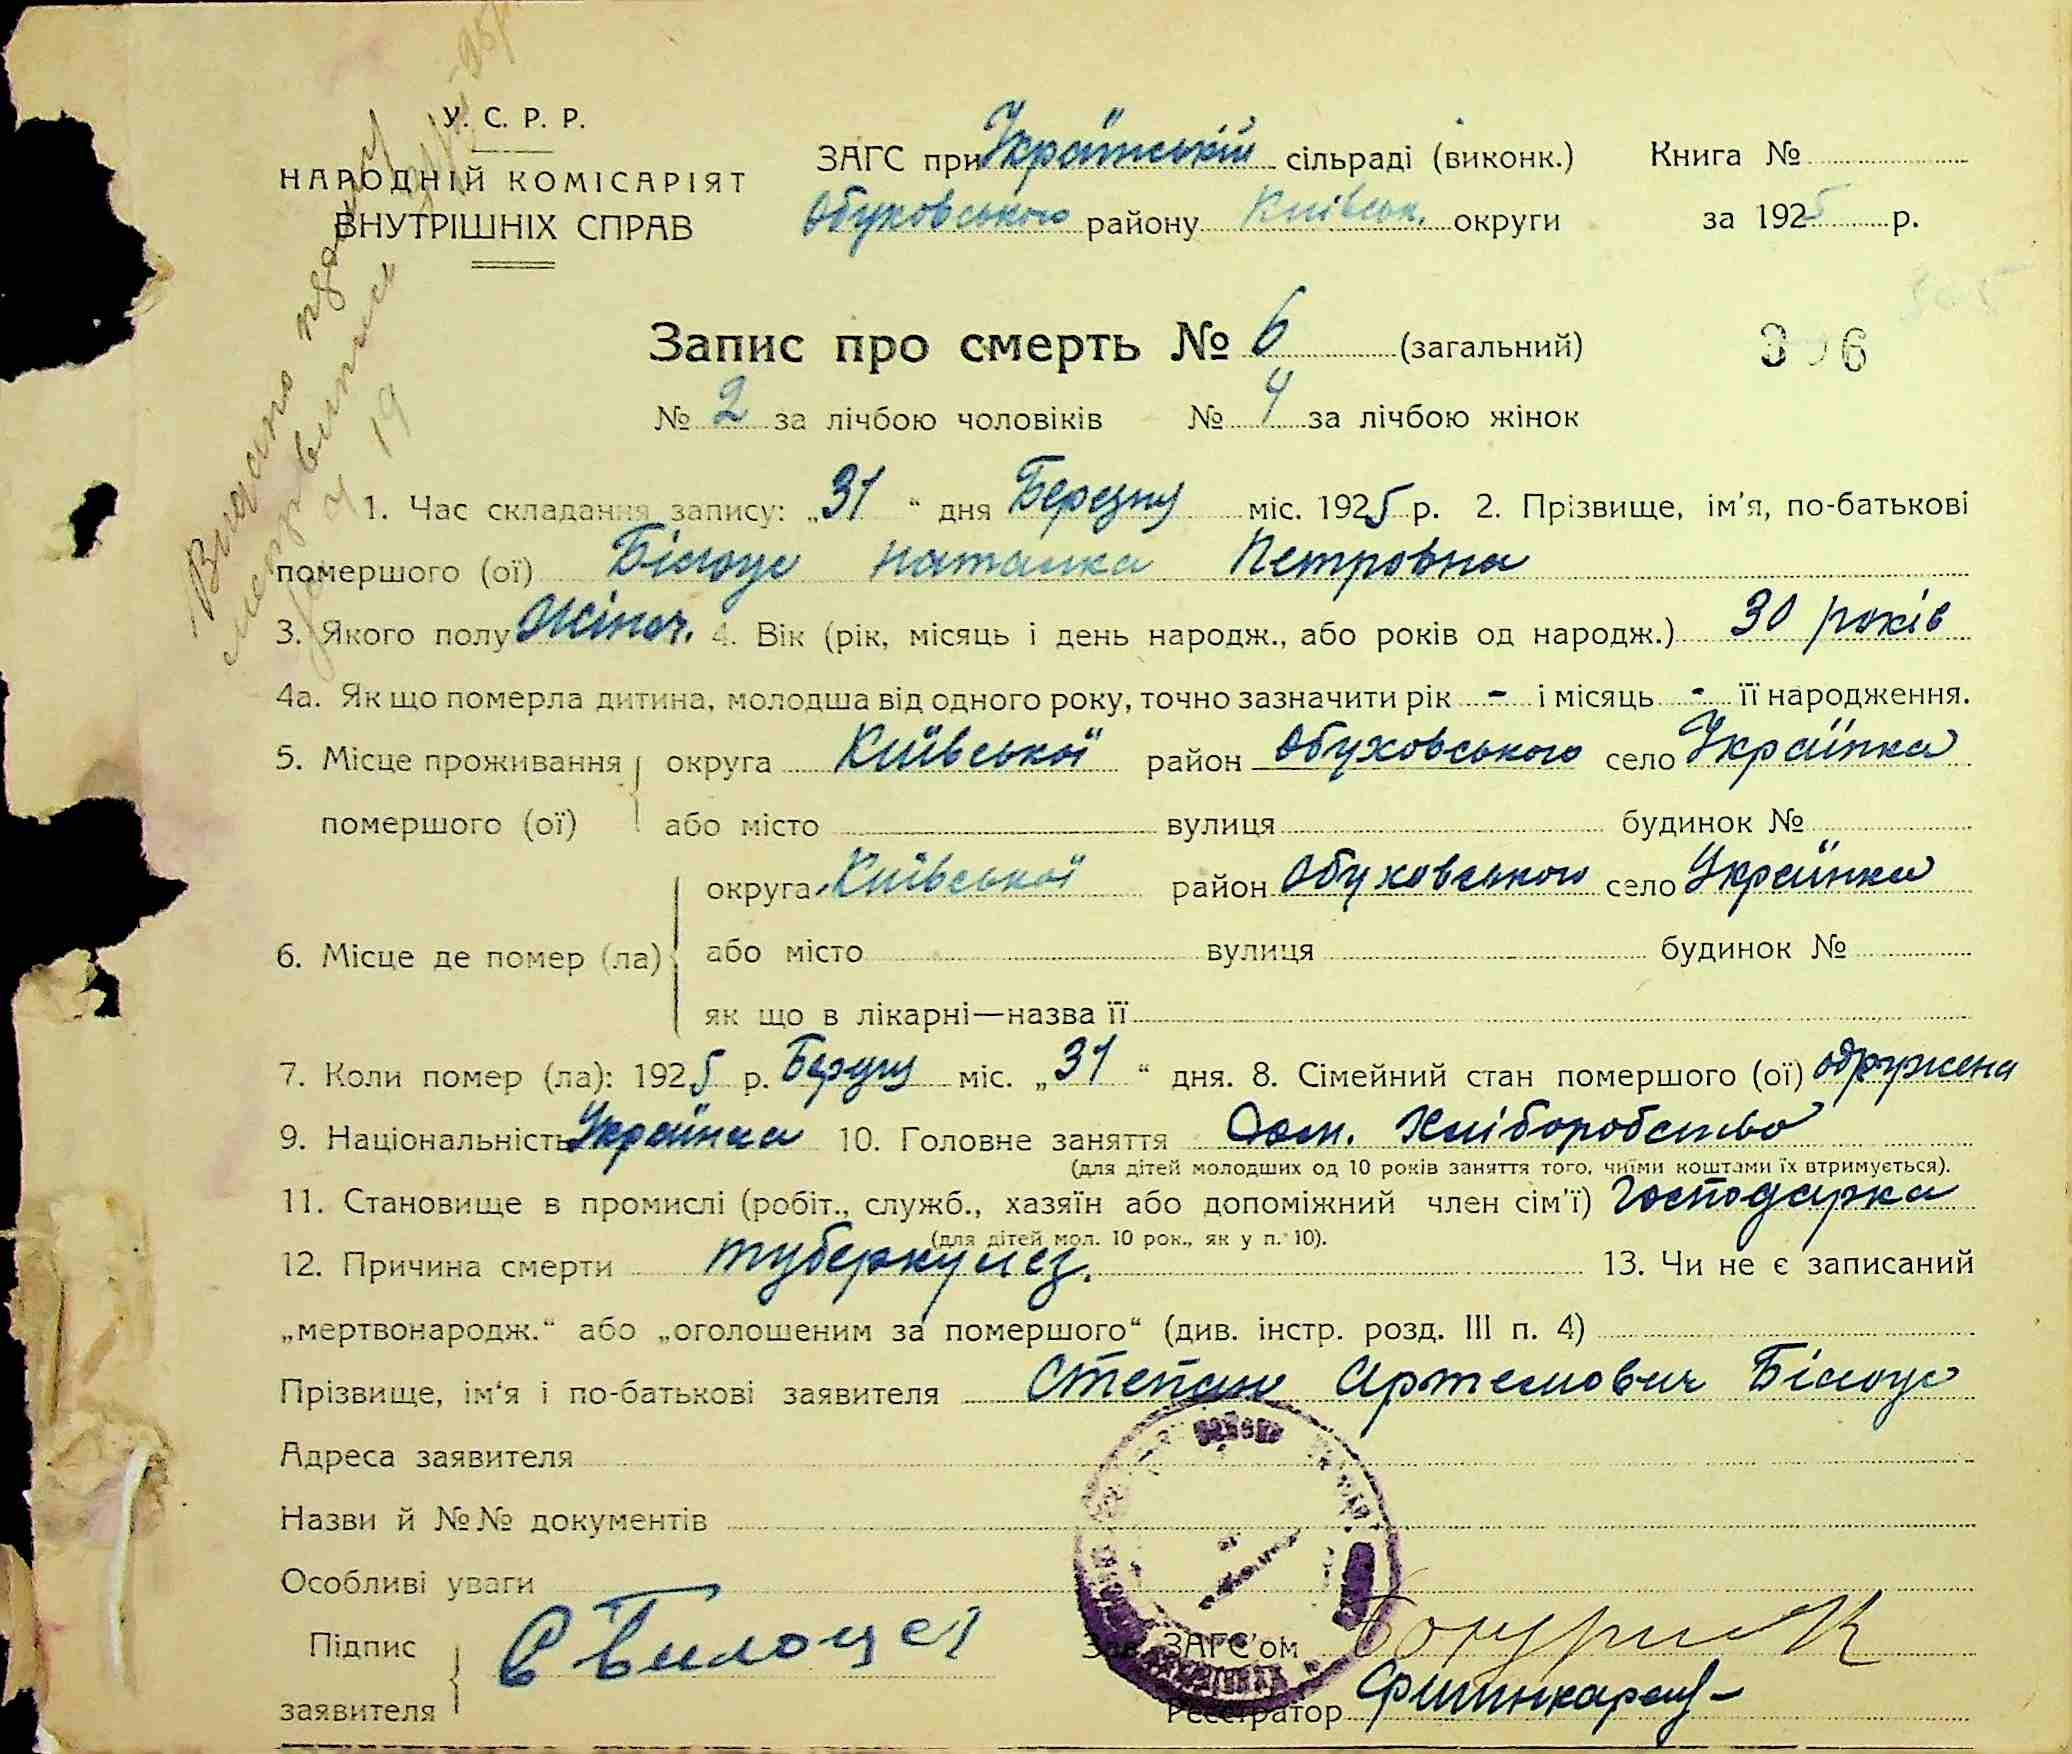 У. С. Р. Р.
НАРОДНІЙ КОМІСАРІЯТ
ВНУТРІШНІХ СПРАВ
ЗАГС при Українській сільраді (виконк.) Книга №
Обуховського району Київськ. округи за 1925 р.
Запис про смерть № 6 (загальний)
306
№ 2 за лічбою чоловіків № 4 за лічбою жінок
1. Час складання запису: „31“ дня Березня міс. 1925 р. 2. Прізвище, ім'я, по-батькові
помершого (ої) Білоус Наталка Петровна
3. Якого полу Жіноч. 4. Вік (рік, місяць і день народж., або років од народж.) 30 років
4а. Як що померла дитина, молодша від одного року, точно зазначити рік - і місяць - її народження.
5. Місце проживання помершого (ої) округа Київської район Обуховського село Українка
або місто вулиця будинок №
6. Місце де помер (ла) округа Київської район Обуховського село Українка
або місто вулиця будинок №
як що в лікарні—назва її
7. Коли помер (ла): 1925 р. Березня міс. „31“ дня. 8. Сімейний стан помершого (ої) одружена
9. Національність Українка 10. Головне заняття Хліборобство
(для дітей молодших од 10 років заняття того, чиїми коштами їх втримується).
11. Становище в промислі (робіт., служб., хазяїн або допоміжний член сім'ї) Господарка
(для дітей мол. 10 рок., як у п. 10).
12. Причина смерти туберкульоз. 13. Чи не є записаний
„мертвонародж.“ або „оголошеним за помершого“ (див. інстр. розд. III п. 4)
Прізвище, ім'я і по-батькові заявителя Степан Артемович Білоус
Адреса заявителя
Назви й №№ документів
Особливі уваги
Підпис заявителя С Билоус
Зав. ЗАГС'ом
Реєстратор